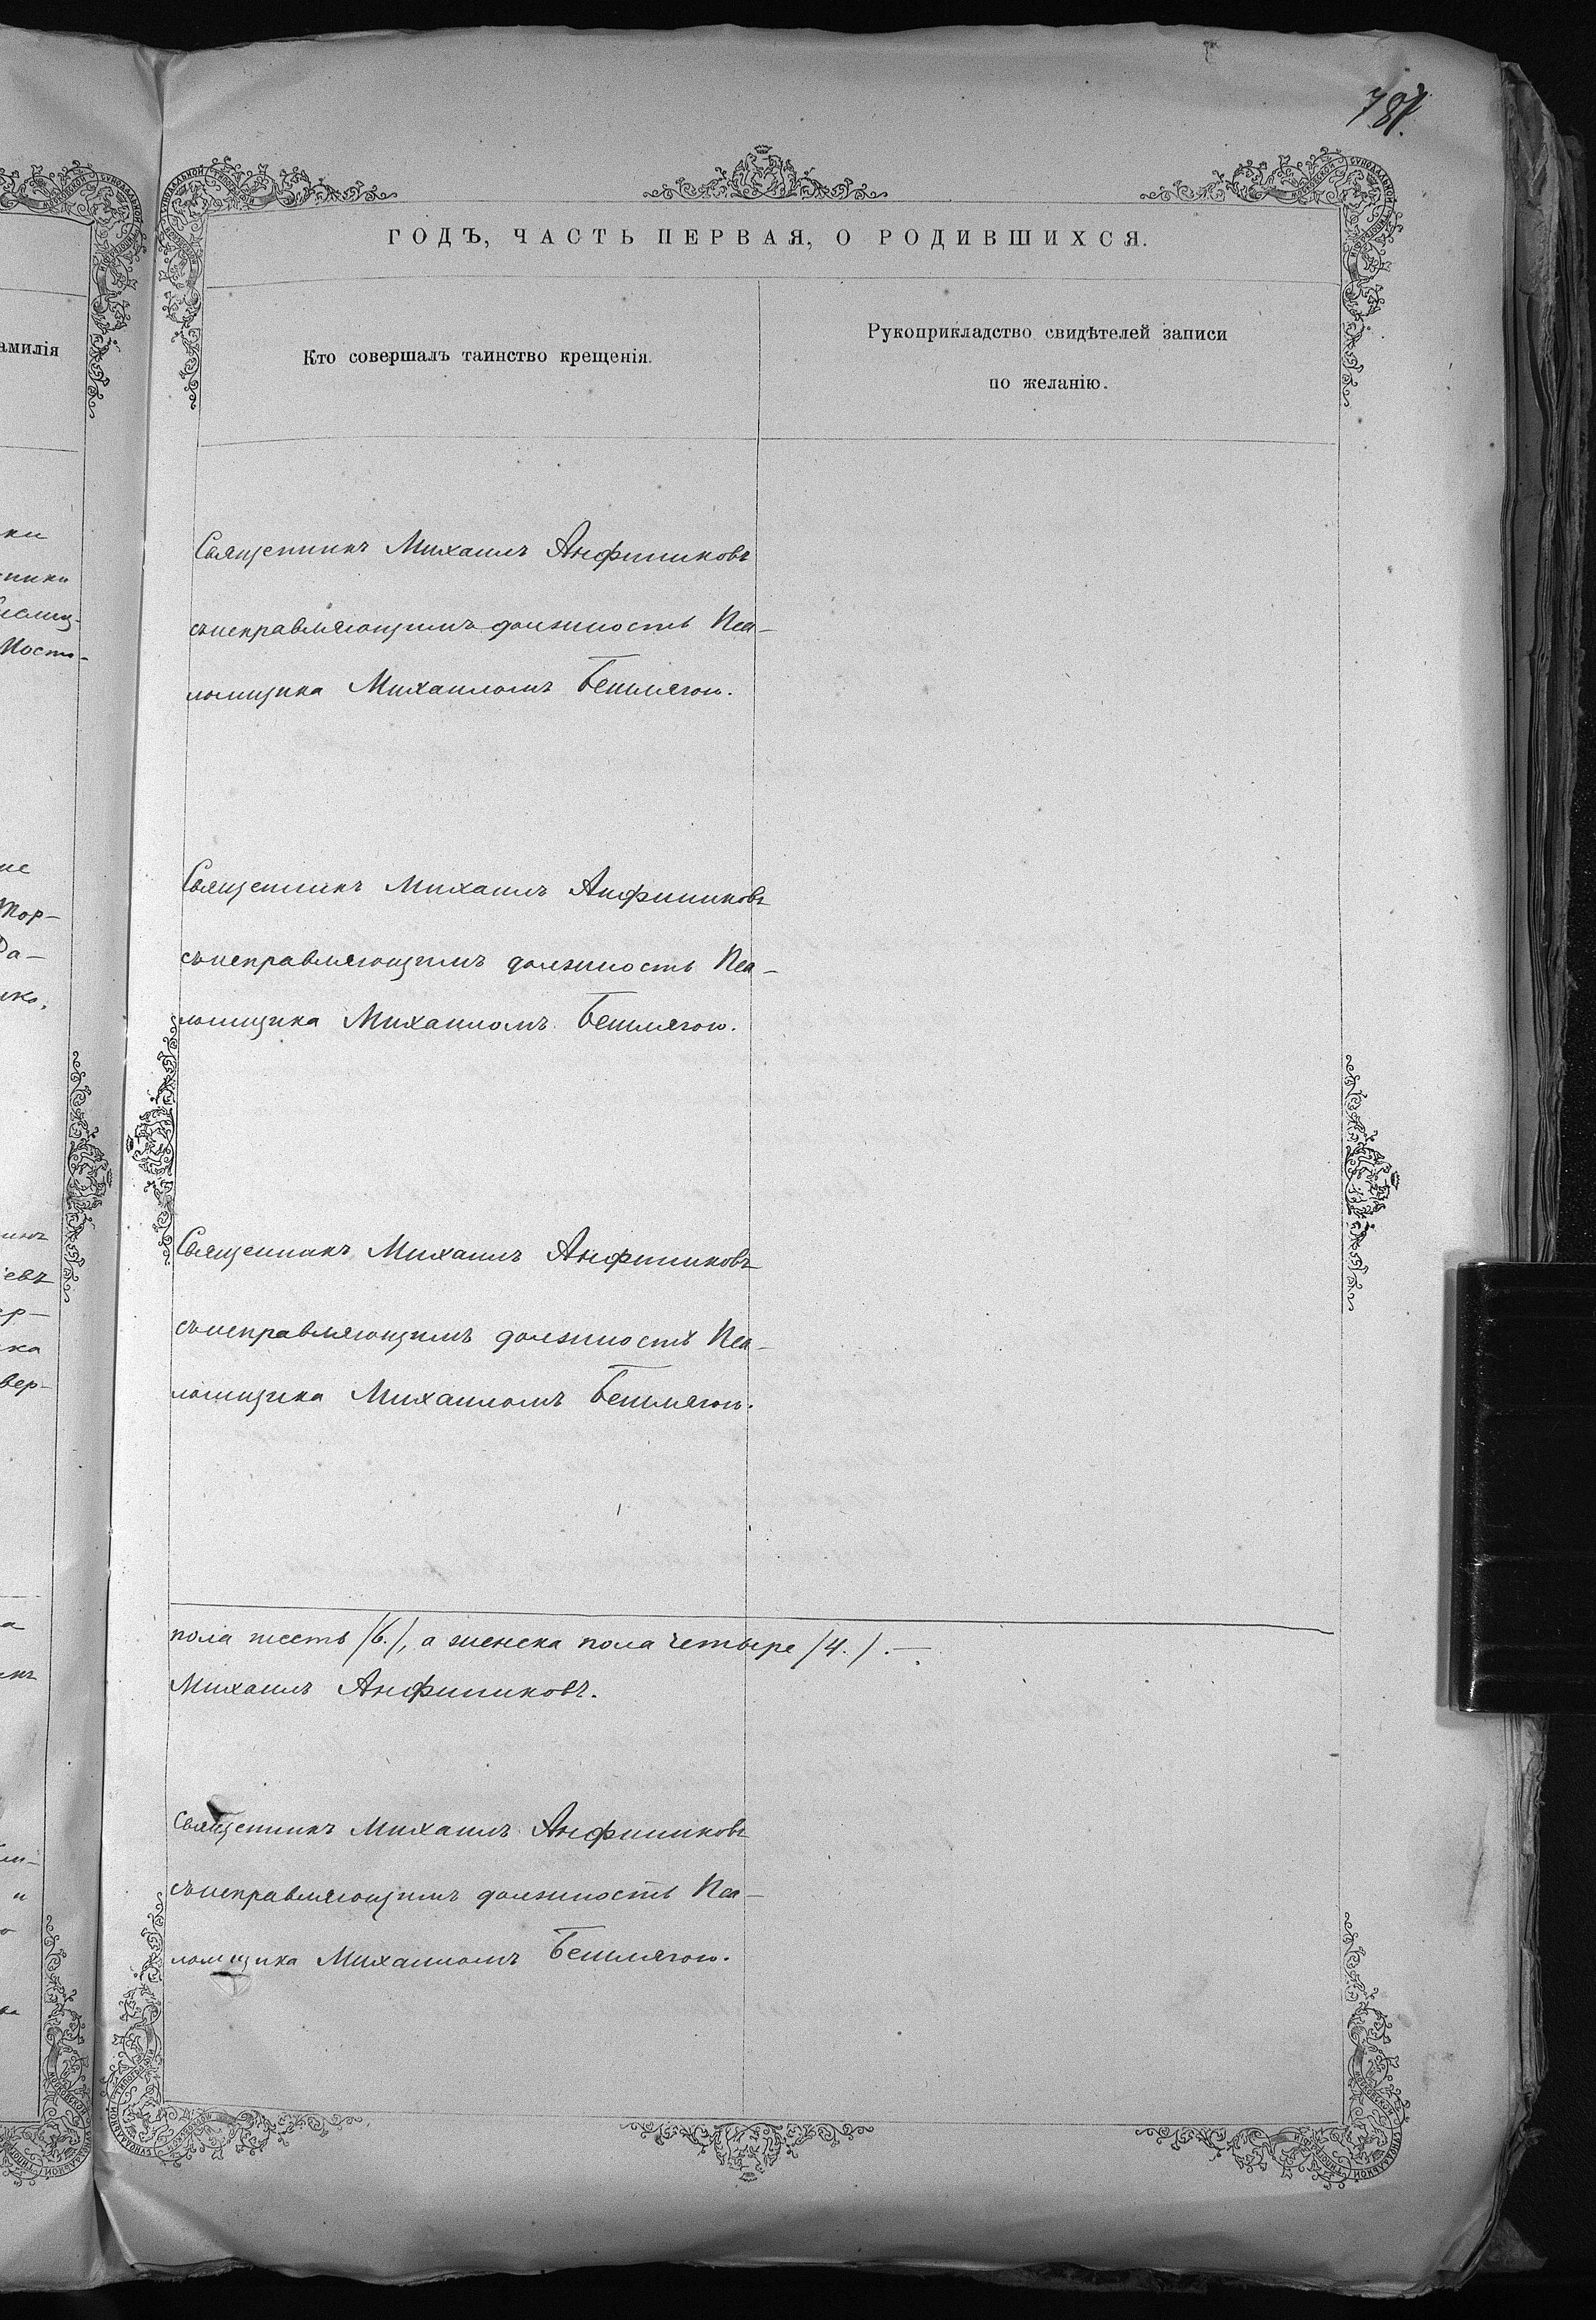 781.
ГОДЪ, ЧАСТЬ ПЕРВАЯ, О РОДИВШИХСЯ.
амилія
Кто совершалъ таинство крещенія.
Рукоприкладство свидѣтелей записи
по желанію.
Священникъ Михаилъ Анфиниковъ
съисправляющимъ должность Пса-
ломщика Михаиломъ Бешлягою.
Священникъ Михаилъ Анфиниковъ
съисправляющимъ должность Пса-
ломщика Михаиломъ Бешлягою.
Священникъ Михаилъ Анфиниковъ
съисправляющимъ должность Пса-
ломщика Михаиломъ Бешлягою.
пола шесть /6./, а женска пола четыре /4./.—.
Михаилъ Анфиниковъ.
Священникъ Михаилъ Анфиниковъ
съисправляющимъ должность Пса-
ломщика Михаиломъ Бешлягою.